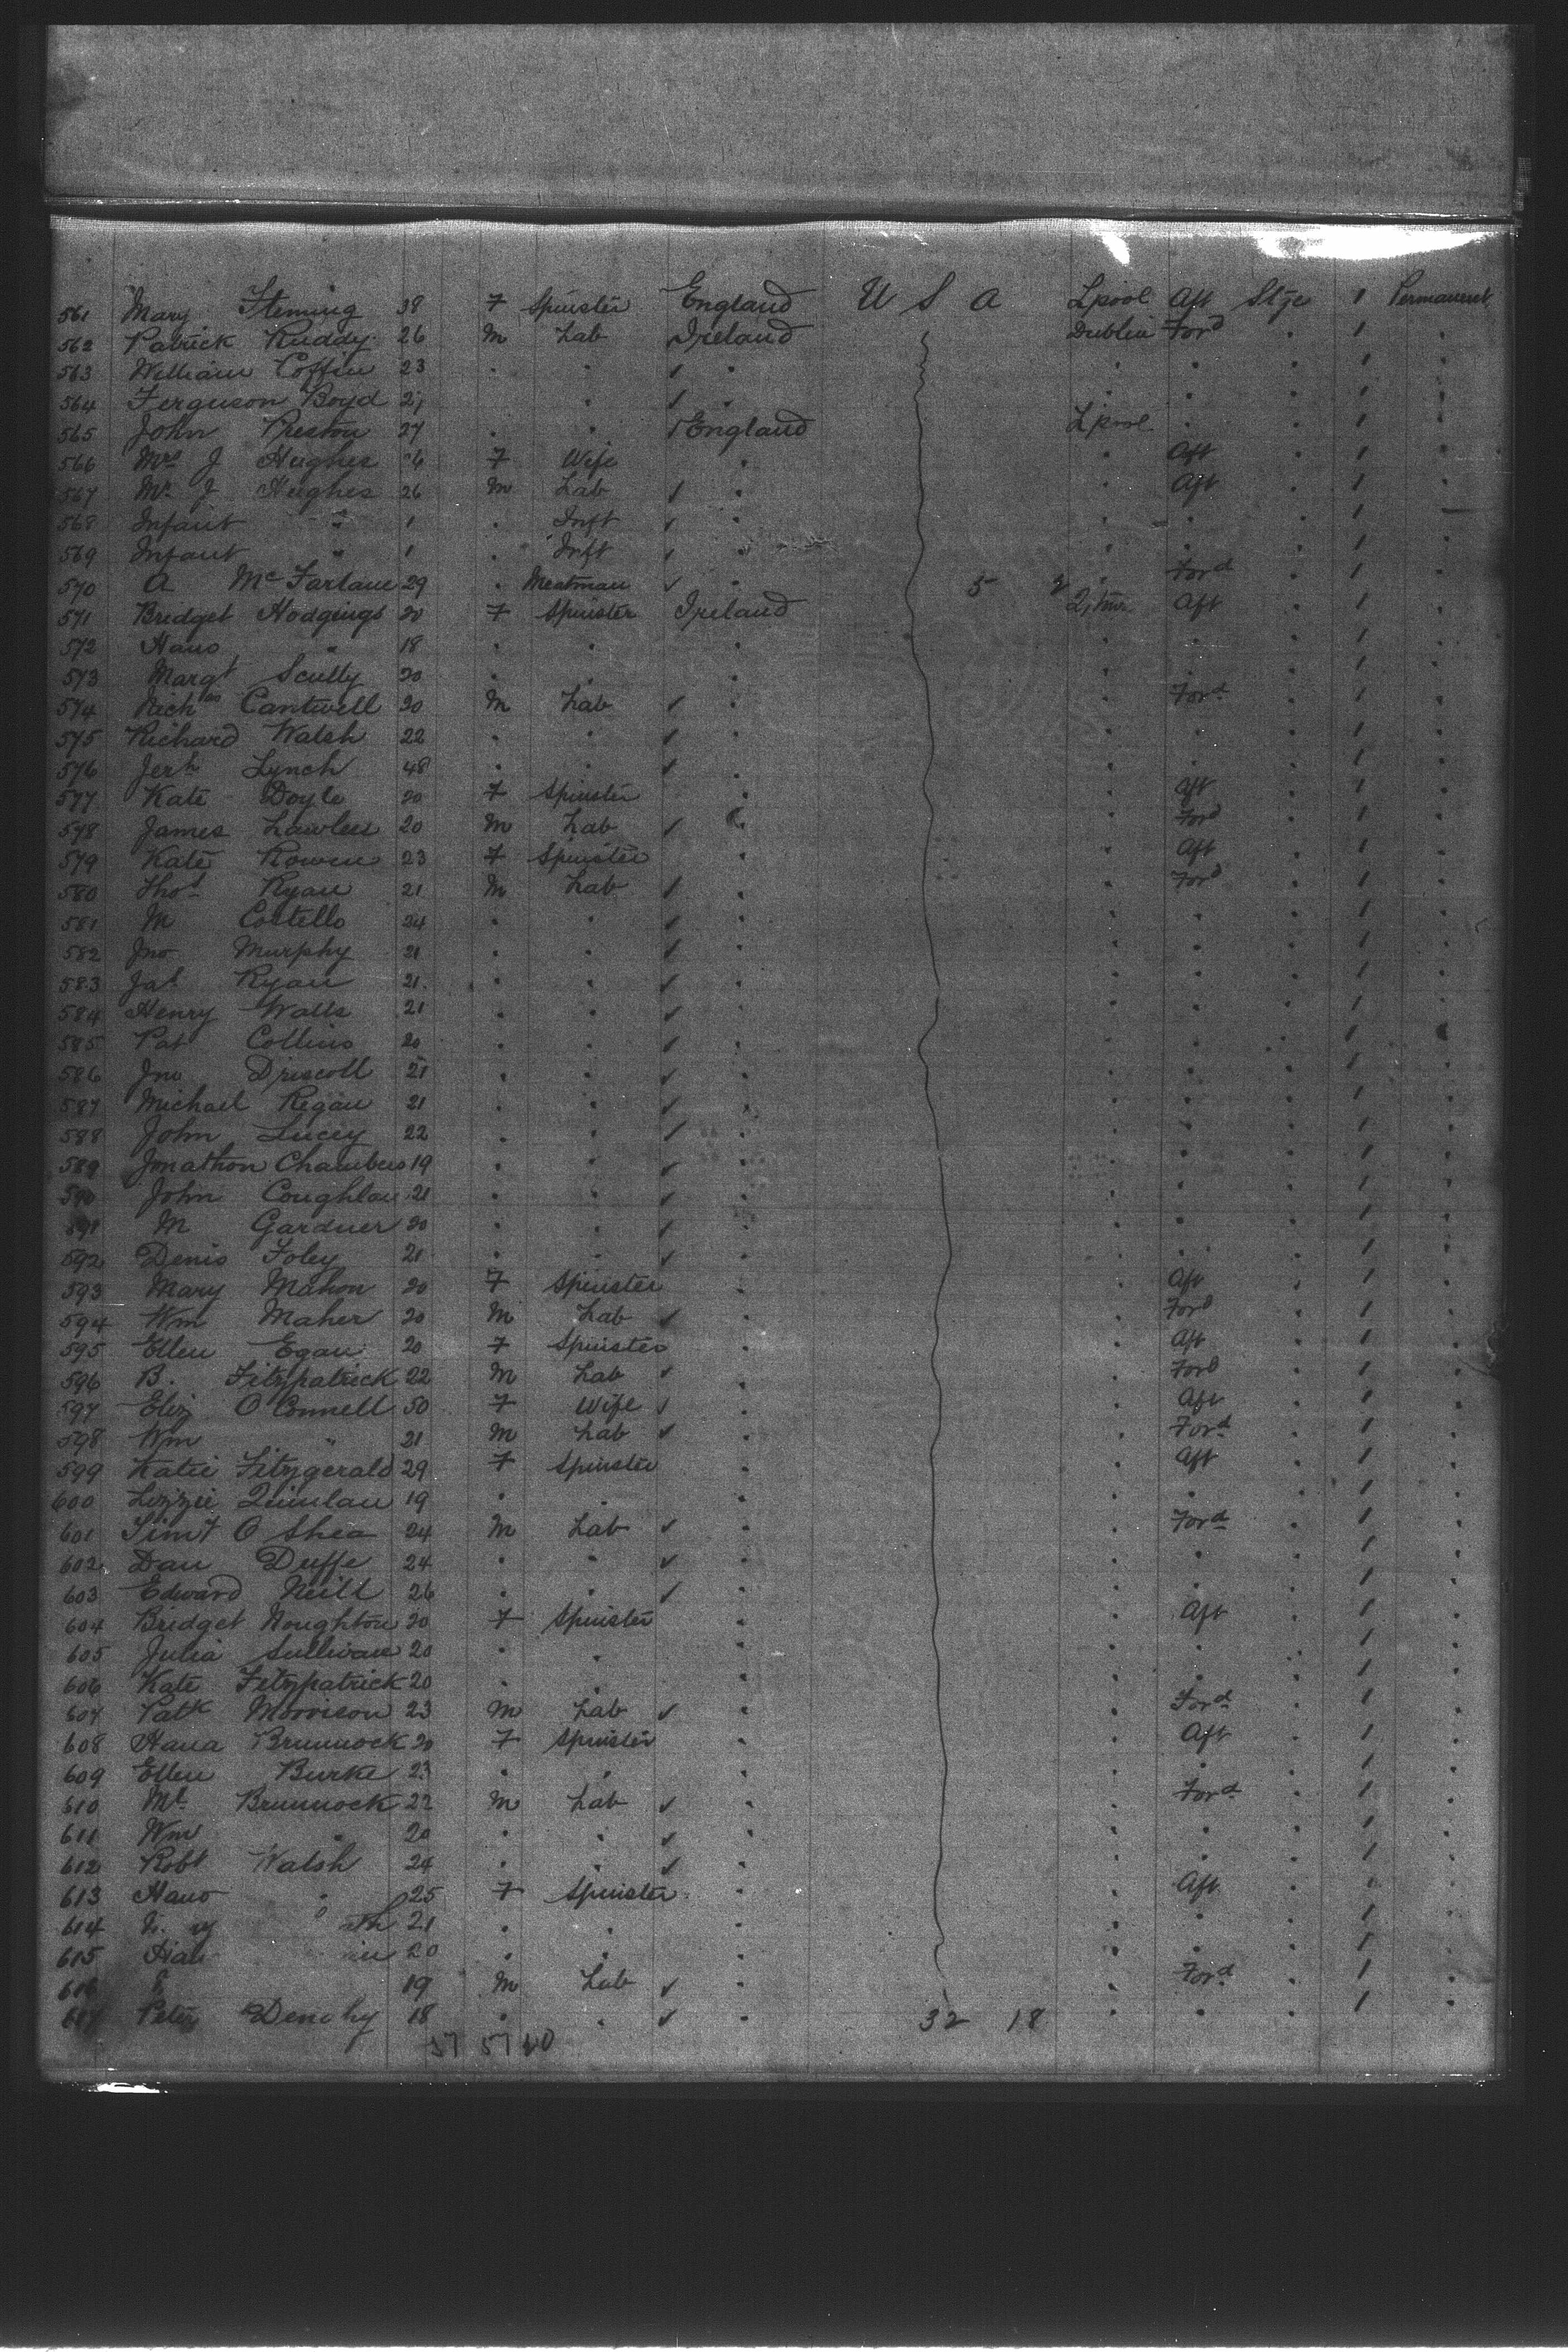 561 Mary Fleming 38 F Spinster England U S A Lpool Aft Stge 1 Permanent
562 Patrick Ruddy 26 M Lab Ireland Dublin Ford . 1 .
563 William Coffin 23 . . ✓ . . . . 1 .
564 Ferguson Boyd . ✓ . . . . 1 .
565 John Preston 27 . . ✓ England Lpool . . 1 .
566 Mrs J Hughes 26 F Wife . . Aft . 1 .
567 Mr J Hughes 26 M Lab ✓ . . Aft . 1 .
568 Infant " 1 . Inft ✓ . . . . 1
569 Infant " 1 . Inft ✓ . . . . 1 .
570 A McFarlane 29 . Meatman ✓ . 5 . Ford . 1 .
571 Bridget Hodgings 20 F Spinster Ireland Qtwn Aft . 1 .
572 Hano " 18 . . . . . . 1 .
573 Margt Scully 20 . . . . . . 1 .
574 Richas Cantwell 20 M Lab ✓ . . Ford . 1 .
575 Richard Walsh 22 . . ✓ . . . . 1 .
576 Jerh Lynch 48 . . ✓ . . . . 1 .
577 Kate Doyle 20 F Spinster . . Aft . 1 .
578 James Lawless 20 M Lab ✓ . . Ford . 1 .
579 Kate Rowen 23 F Spinster . . Aft . 1 .
580 Thos Ryan 21 M Lab ✓ . . Ford . 1 .
581 M Costello 24 . . ✓ . . . . 1 .
582 Jno Murphy 21 . . ✓ . . . . 1 .
583 Jas Ryan 21 . . ✓ . . . . 1 .
584 Henry Watts 21 . . ✓ . . . . 1 .
585 Pat Collins 20 . . ✓ . . . . 1 .
586 Jno Driscoll 21 . . ✓ . . . . 1 .
587 Michael Regan 21 . . ✓ . . . . 1 .
588 John Lucey 22 . . ✓ . . . . 1 .
589 Jonathon Chambers 19 . . ✓ . . . . 1 .
590 John Coughlan 21 . . ✓ . . . . 1 .
591 M Gardner 20 . . ✓ . . . . 1 .
592 Denis Foley 21 . . ✓ . . . . 1 .
593 Mary Mahon 20 F Spinster . . Aft . 1 .
594 Wm Maher 20 M Lab ✓ . . Ford . 1 .
595 Ellen Egan 20 F Spinster . . Aft . 1 .
596 B. Fitzpatrick 22 M Lab ✓ . . Ford . 1 .
597 Eliz O'Connell 50 F Wife ✓ . . Aft . 1 .
598 Wm " 21 M Lab ✓ . . Ford . 1 .
599 Katie Fitzgerald 29 F Spinster . . Aft . 1 .
600 Lizzie Quinlan 19 . . . . . . 1 .
601 Timt O Shea 24 M Lab ✓ . . Ford . 1 .
602 Dan Duffe 24 . . ✓ . . . . 1 .
603 Edward Neill 26 . . ✓ . . . . 1 .
604 Bridget Noughton 20 F Spinster . . Aft . 1 .
605 Julia Sullivan 20 . . . . . . 1 .
606 Kate Fitzpatrick 20 . . . . . . 1 .
607 Patk Morrison 23 M Lab ✓ . . Ford . 1 .
608 Hana Brunnock 20 F Spinster . . Aft . 1 .
609 Ellen Burke 23 . . . . . . 1 .
610 Ml Brunnock 22 M Lab ✓ . . Ford . 1 .
611 Wm " 20 . . ✓ . . . . 1 .
612 Robt Walsh 24 . . ✓ . . . . 1 .
613 Hano " 25 F Spinster . . Aft . 1 .
614 21 . . . . . . 1 .
615 20 . . . . . . 1 .
616 19 M Lab ✓ . . Ford . 1 .
617 Peter Denehy 18 . . ✓ . 32 18 . . . 1 .
57 57